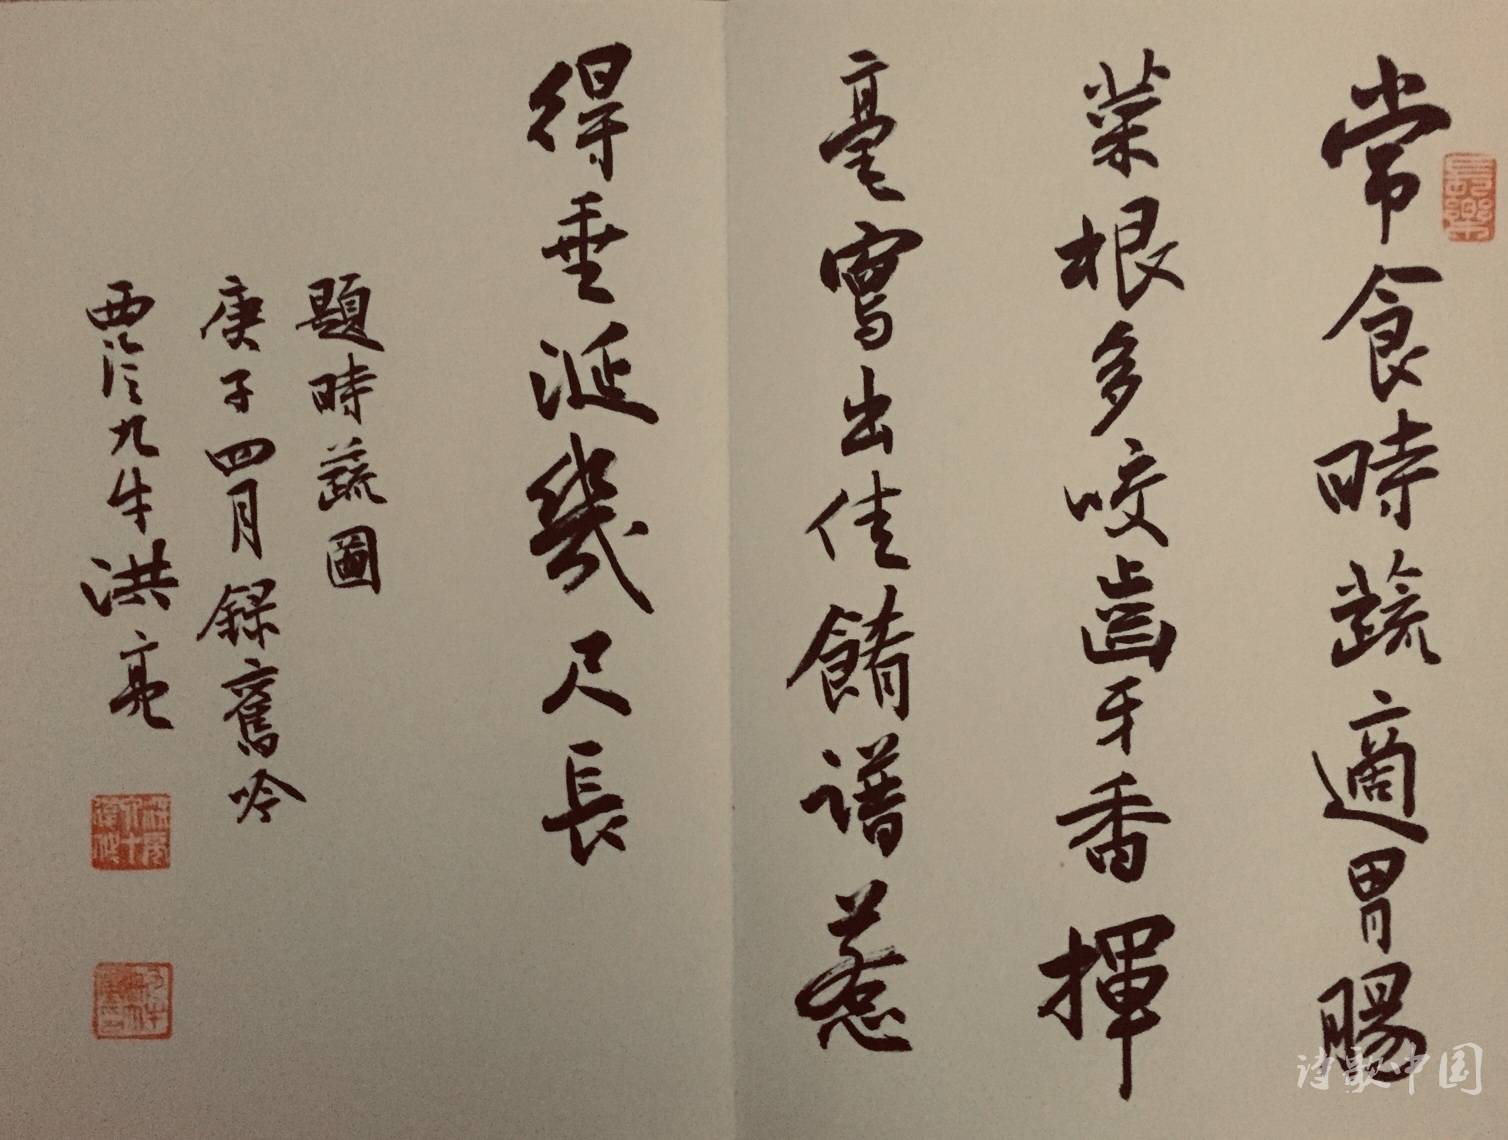 常食時蔬適胃腸
菜根多咬齒牙香揮
毫寫出佳餚譜惹
得垂涎幾尺長
題時蔬圖
庚子四月錄舊吟
西泠九牛洪亮
長樂
诗歌中国